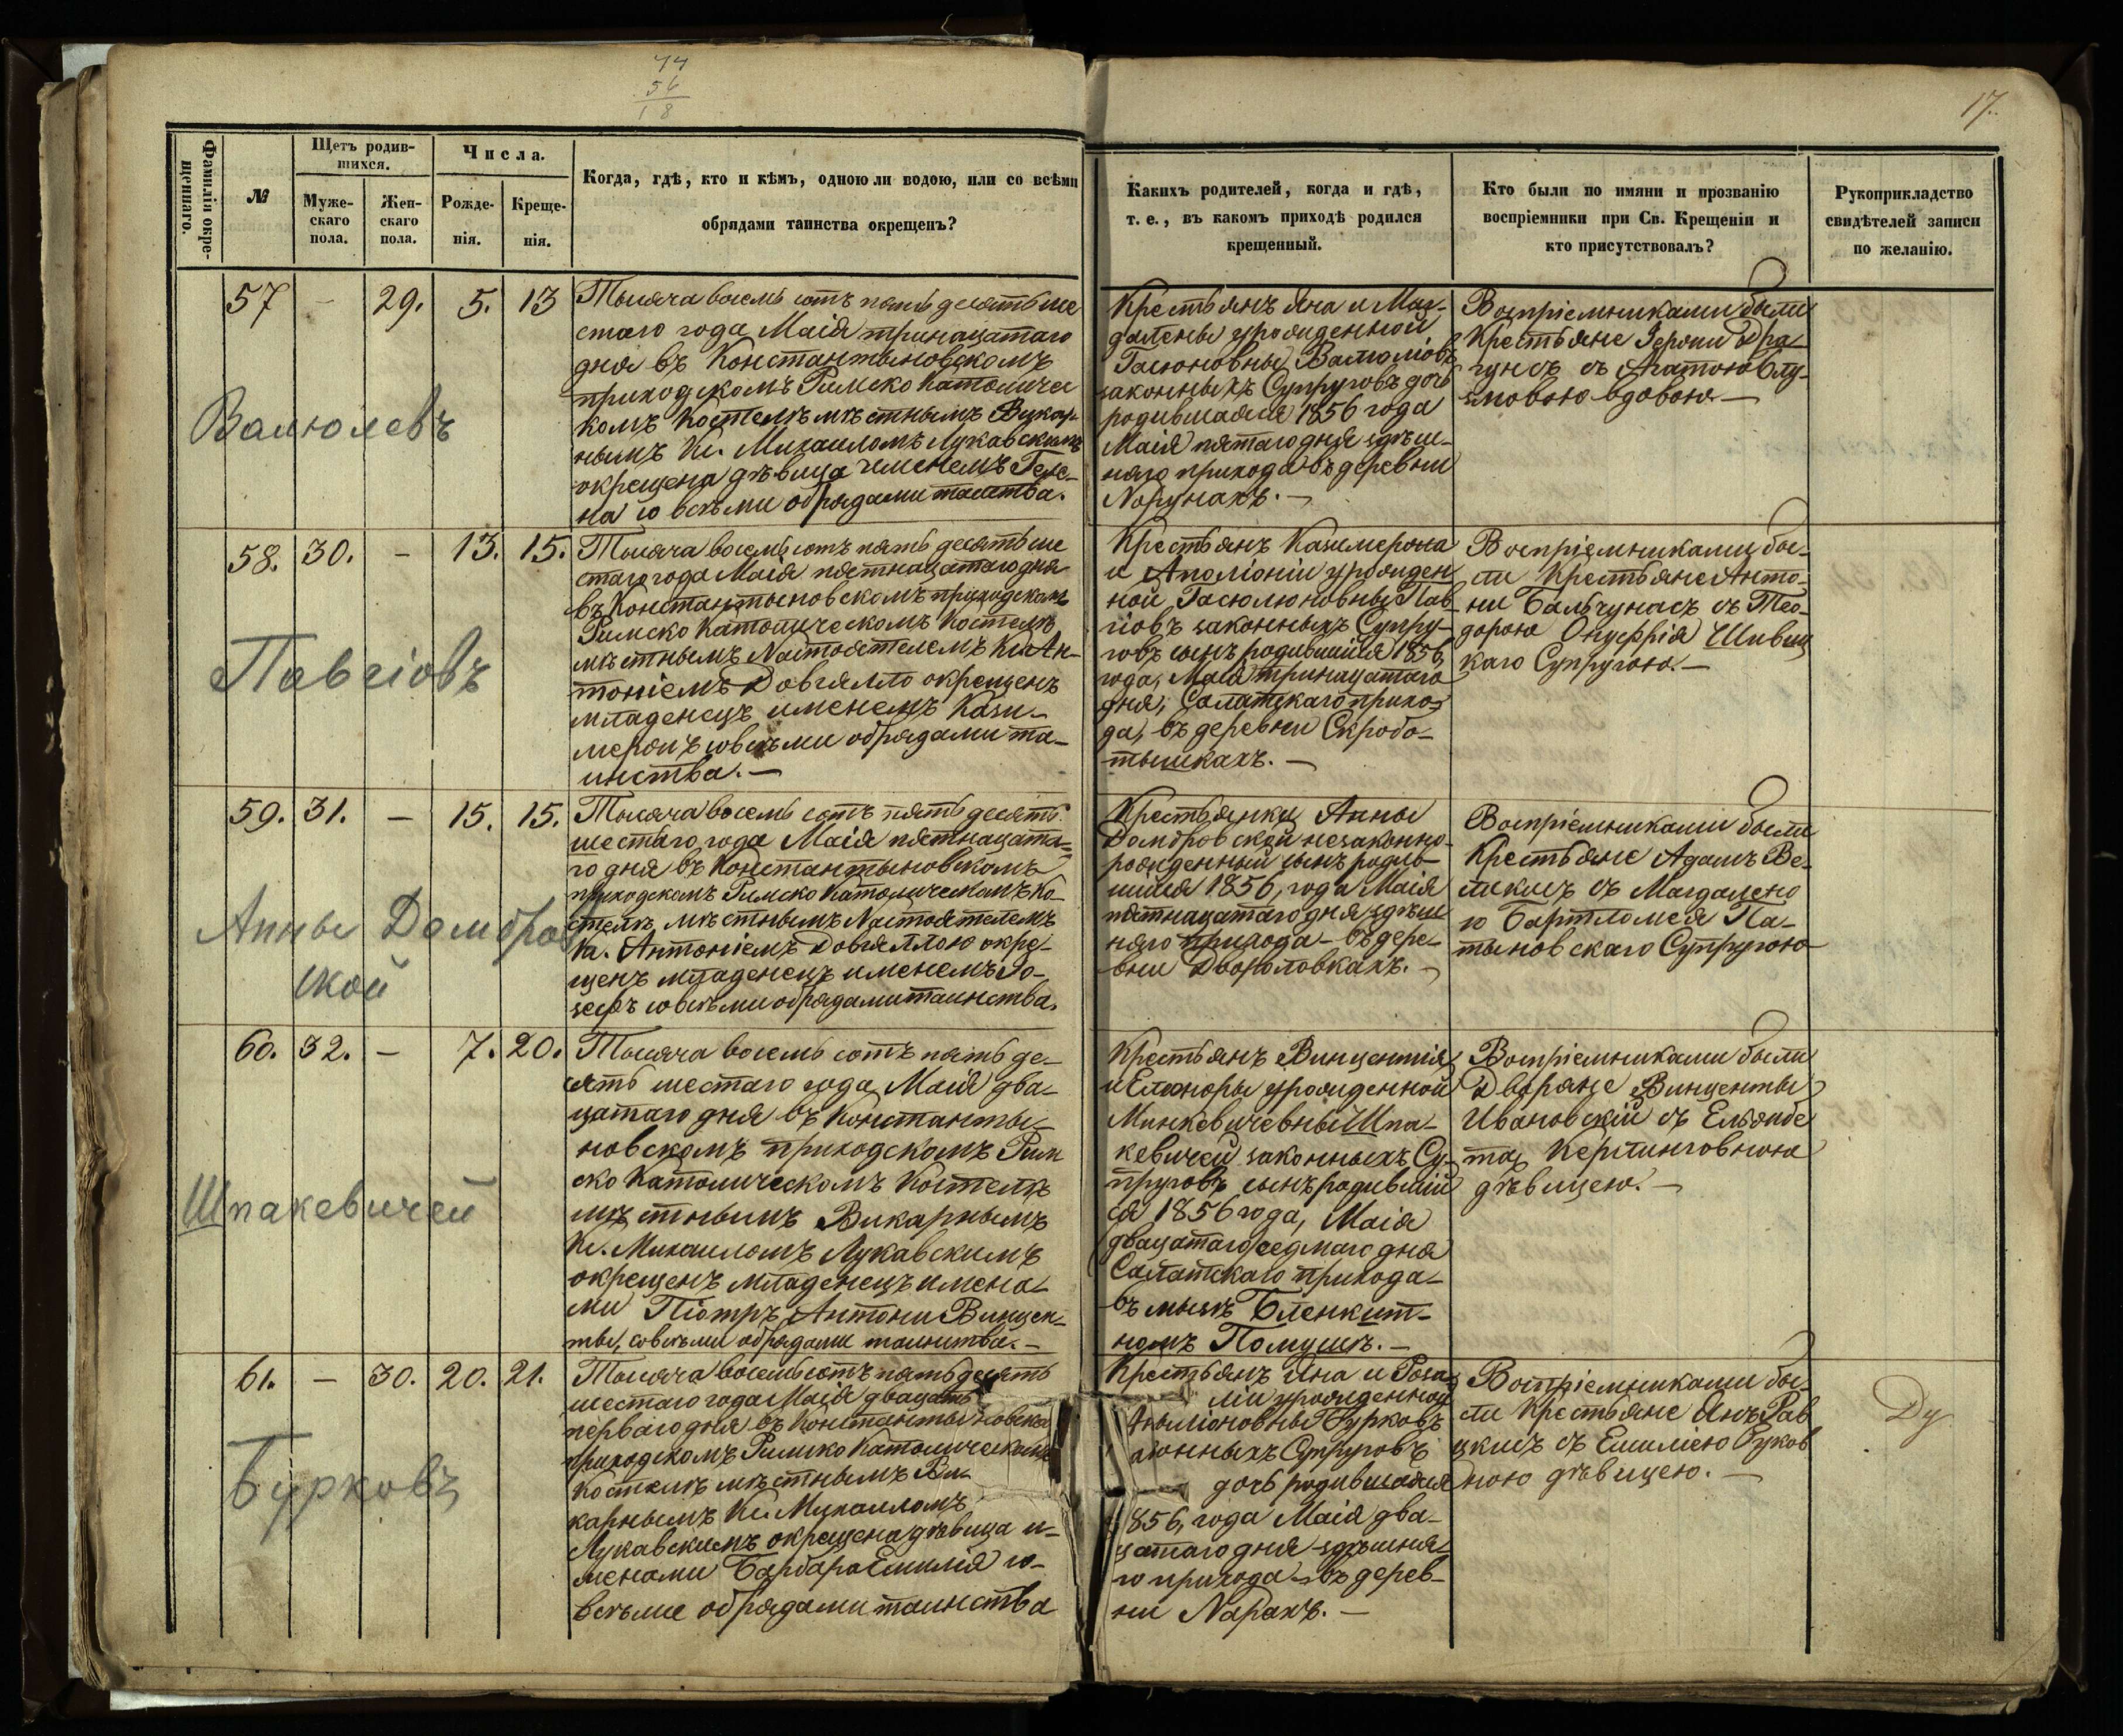 44
56
18
17.
Фамилія окре-
щеннаго.
№
Щетъ родив-
шихся.
Муже-
скаго
пола.
Жен-
скаго
пола.
Числа.
Рожде-
нія.
Креще-
нія.
Когда, гдѣ, кто и кѣмъ, одною ли водою, или со всѣми
обрядами таинства окрещенъ?
Какихъ родителей, когда и гдѣ,
т. е., въ какомъ приходѣ родился
крещенный.
Кто были по имяни и прозванію
воспріемники при Св. Крещеніи и
кто присутствовалъ?
Рукоприкладство
свидѣтелей записи
по желанію.
57 - 29. 5. 13
Валюлевъ
Тысяча восемь сотъ пять десятъ ше
стаго года Маія тринацатаго
дня въ Константыновскомъ
приходскомъ Римско Католичес
комъ Костелѣ мѣстнымъ Викар-
нымъ Кс. Михаиломъ Лукавскимъ
окрещена дѣвица именемъ Геле-
на со всѣми обрядами таинства.
Крестьянъ Яна и Маг-
далены урожденной
законныхъ Супруговъ дочь
родившаяся 1856 года
Маія пятаго дня здѣш-
няго прихода въ деревни
Норунахъ. -
Воспріемниками были
Крестьяне Героним Дра-
гунсъ съ Агатою Блу-
мовою вдовою -
58. 30. - 13. 15.
Повсіовъ
Тысяча восемь сотъ пять десятъ ше
стаго года Маія пятнацатаго дня
въ Константыновскомъ приходском
Римско Католическомъ Костелѣ
мѣстнымъ Настоятелемъ Кс. Ан-
тоніемъ Довгялло окрещенъ
младенецъ именемъ Кази-
меромъ совсѣми обрядами та-
инства. -
Крестьянъ Казимерона
и Аполіоніи урожден
ной Гасюлюновны Пав
ловъ законныхъ Супру-
говъ сынъ родившійся 1856
года, Маія тринацатаго
дня, Салатскаго прихо-
да, въ деревни Скробо-
тышкахъ. -
Воспріемниками бы-
ли Крестьяне Анто-
ни Бальчунасъ съ Тео-
дорою Онуфрія Шивиц
каго Супругою. -
59. 31. - 15. 15.
Анны Домбров
ской
Тысяча восемь сотъ пять десятъ
шестаго года Маія пятнацата-
го дня въ Константыновскомъ
приходскомъ Римско Католическомъ Ко-
стелѣ, мѣстнымъ Настоятелемъ
Кс. Антоніемъ Довгяллою окре-
щенъ младенецъ именемъ Іо-
зефъ со всѣми обрядами таинства.
Крестьянки Анны
Домбровской незаконно-
рожденный сынъ родив-
шійся 1856, года Маія
пятнацатаго дня здѣш
няго прихода - въ дере-
вни Двополовкахъ. -
Воспріемниками были
Крестьяне Адамъ Ве-
ликисъ съ Магдалено
ю Бартломея Па-
тыновскаго Супругою
60. 32. - 7. 20.
Шпакевичей
Тысяча восемь сотъ пять де-
сятъ шестаго года Маія два-
цатаго дня въ Константы-
новскомъ приходскомъ Рим
ско Католическомъ Костелѣ
мѣстнымъ Викарнымъ
Кс. Михаиломъ Лукавскимъ
окрещенъ младенецъ имена-
ми Піотръ, Антони Винцен-
ты, совсѣми обрядами таинства. -
Крестьянъ Винцентія
и Елеоноры урожденной
Минкевичевны Шпа-
кевичей законныхъ Су-
пруговъ сынъ родившій
ся 1856 года, Маія
двацатаго седмаго дня
Салатскаго прихода
въ мызѣ Бленкит-
номъ Помушѣ. -
Воспріемниками были
Дворяне Винценты
Ивановскій съ Ельжбе
тą Керслинговною
дѣвицею. -
61. - 30. 20. 21.
Бурковъ
Тысяча восемь сотъ пять десятъ
шестаго года Маія двацать
перваго дня въ Константыновско
приходскомъ Римско Католическомъ
Костелѣ мѣстнымъ Ви-
карнымъ Кс. Михаиломъ
Лукавскимъ окрещена дѣвица и-
менами Барбара Емилія со-
всѣми обрядами таинства
Крестьянъ Яна и Роза-
ліи урожденной
Супруговъ
дочь родившаяся
856, года Маія два-
цатаго дня здѣшня-
го прихода - въ дерев-
ни Нарахъ. -
Воспріемниками бы-
ли Крестьяне Янъ Рав
цкисъ съ Емиліею Бурков
ною дѣвицею. -
Ду